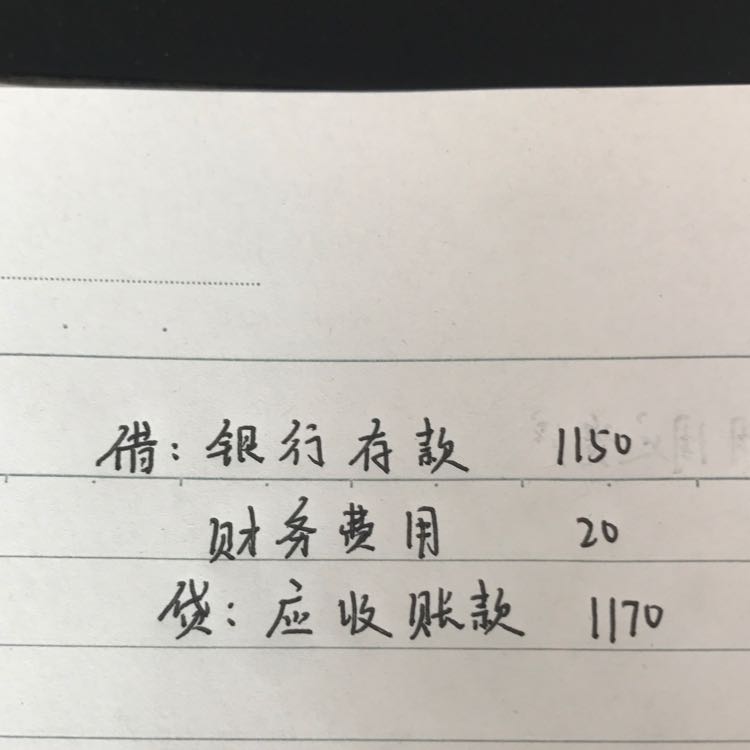 借：银行存款 1150
财务费用 20
贷：应收账款 1170